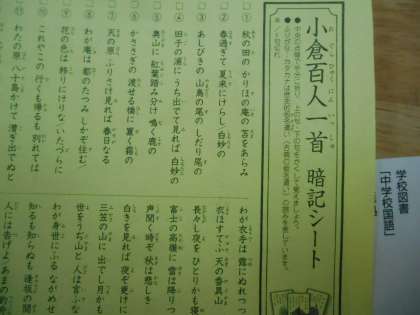 小倉百人一首 暗記シート
●中央の点線で半分に折り、上の句、下の句をかくして覚えましょう。
① 秋の田の かりほの庵の 苫をあらみ
② 春過ぎて 夏来にけらし 白妙の
③ あしびきの 山鳥の尾の しだり尾の
④ 田子の浦に うち出でて見れば 白妙の
⑤ 奥山に 紅葉踏み分け 鳴く鹿の
⑥ かささぎの 渡せる橋に 置く霜の
⑦ 天の原 ふりさけ見れば 春日なる
⑧ わが庵は 都のたつみ しかぞ住む
⑨ 花の色は 移りにけりな いたづらに
⑩ これやこの 行くも帰るも 別れては
⑪ わたの原 八十島かけて 漕ぎ出でぬと
わが衣手は 露にぬれつつ
衣ほすてふ 天の香具山
長々し夜を ひとりかも寝
富士の高嶺に 雪は降りつ
声聞く時ぞ 秋は悲しき
白きを見れば 夜ぞ更けに
三笠の山に 出でし月かも
世をうぢ山と 人は言ふな
わが身世にふる ながめせ
知るも知らぬも 逢坂の関
人には告げよ あまの
学校図書
「中学校国語」